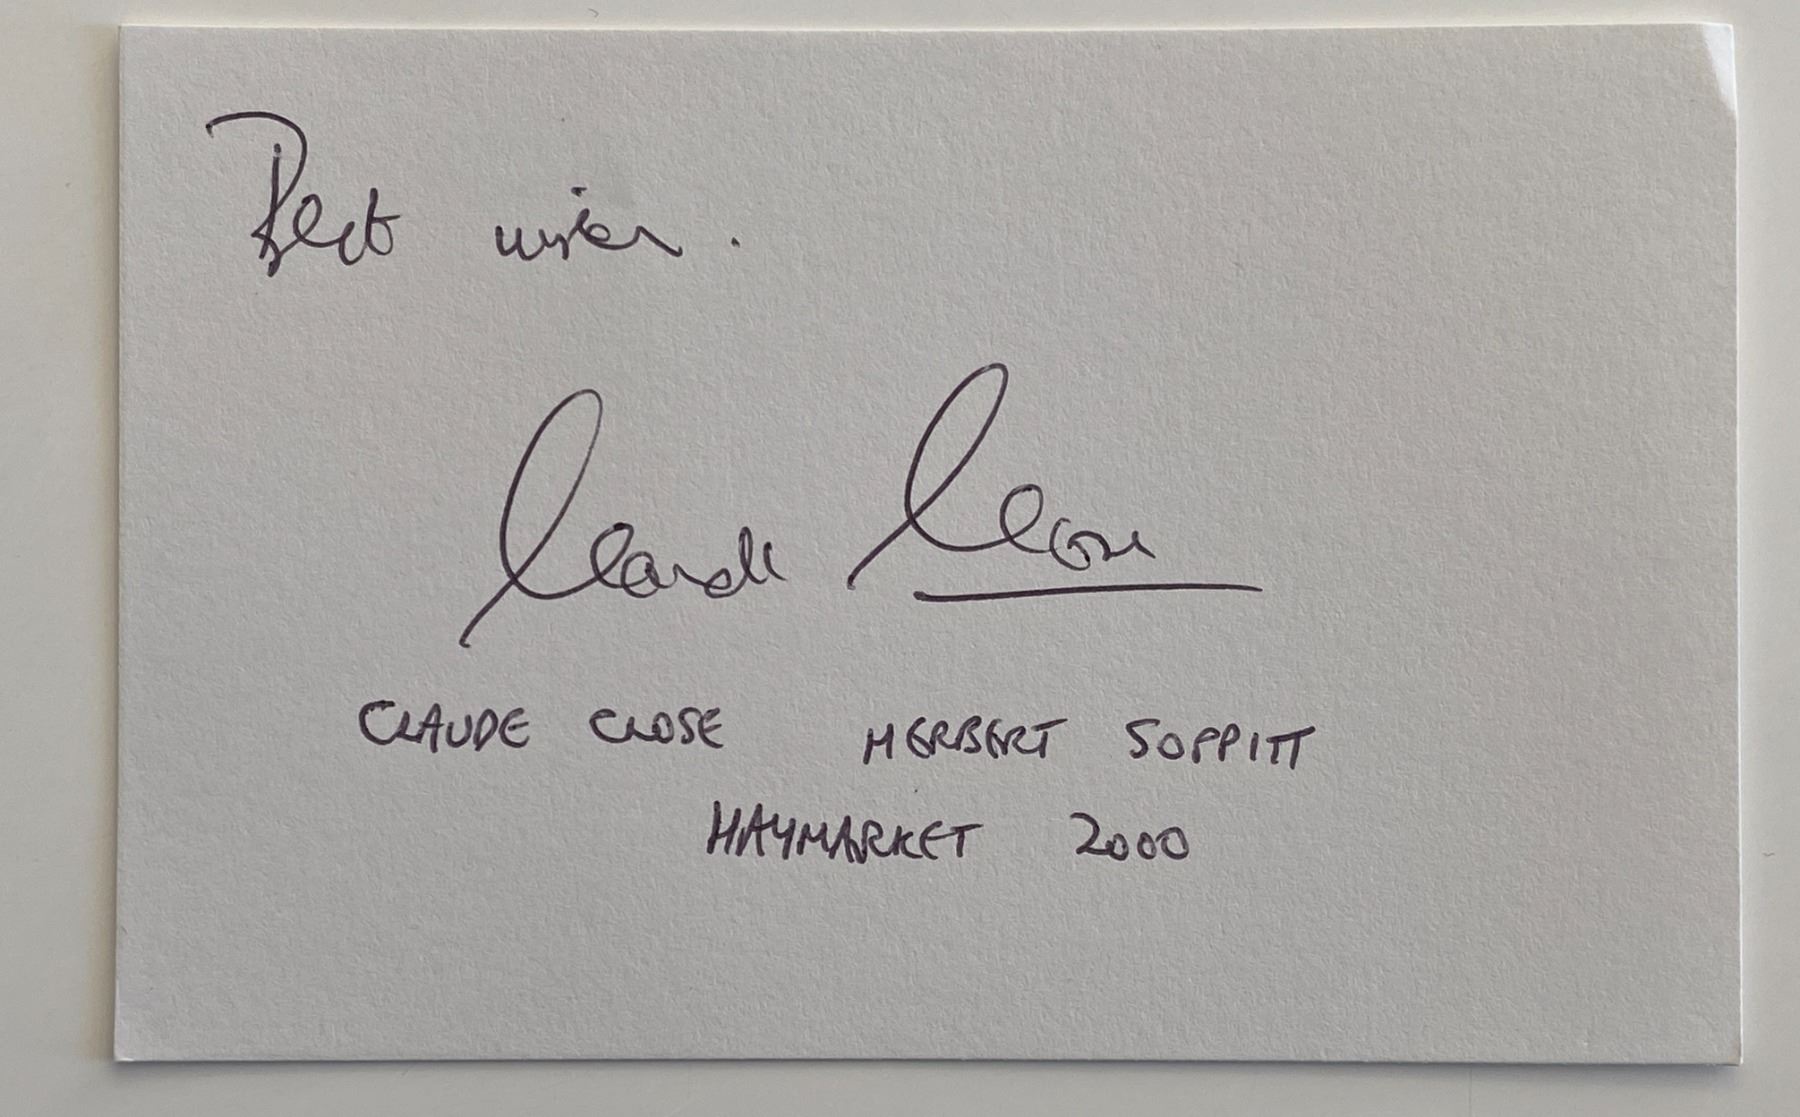 Best wishes.
Claude Close
CLAUDE CLOSE HERBERT SOPPITT
HAYMARKET 2000